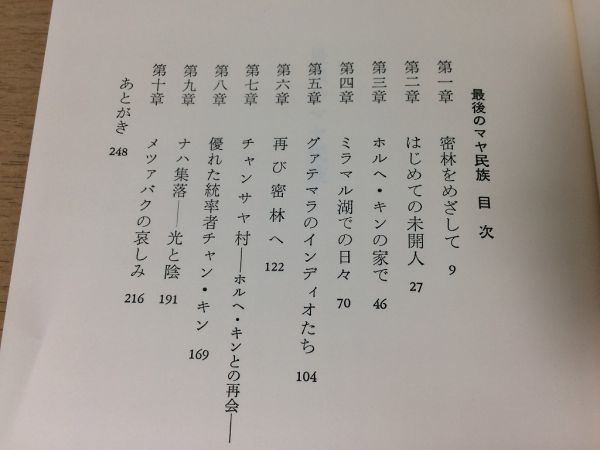 最後のマヤ民族 目次
第一章 密林をめざして 9
第二章 はじめての未開人 27
第三章 ホルヘ・キンの家で 46
第四章 ミラマル湖での日々 70
第五章 グァテマラのインディオたち 104
第六章 再び密林へ 122
第七章 チャンサヤ村――ホルヘ・キンとの再会――
第八章 優れた統率者チャン・キン 169
第九章 ナハ集落――光と陰 191
第十章 メツァバクの哀しみ 216
あとがき 248